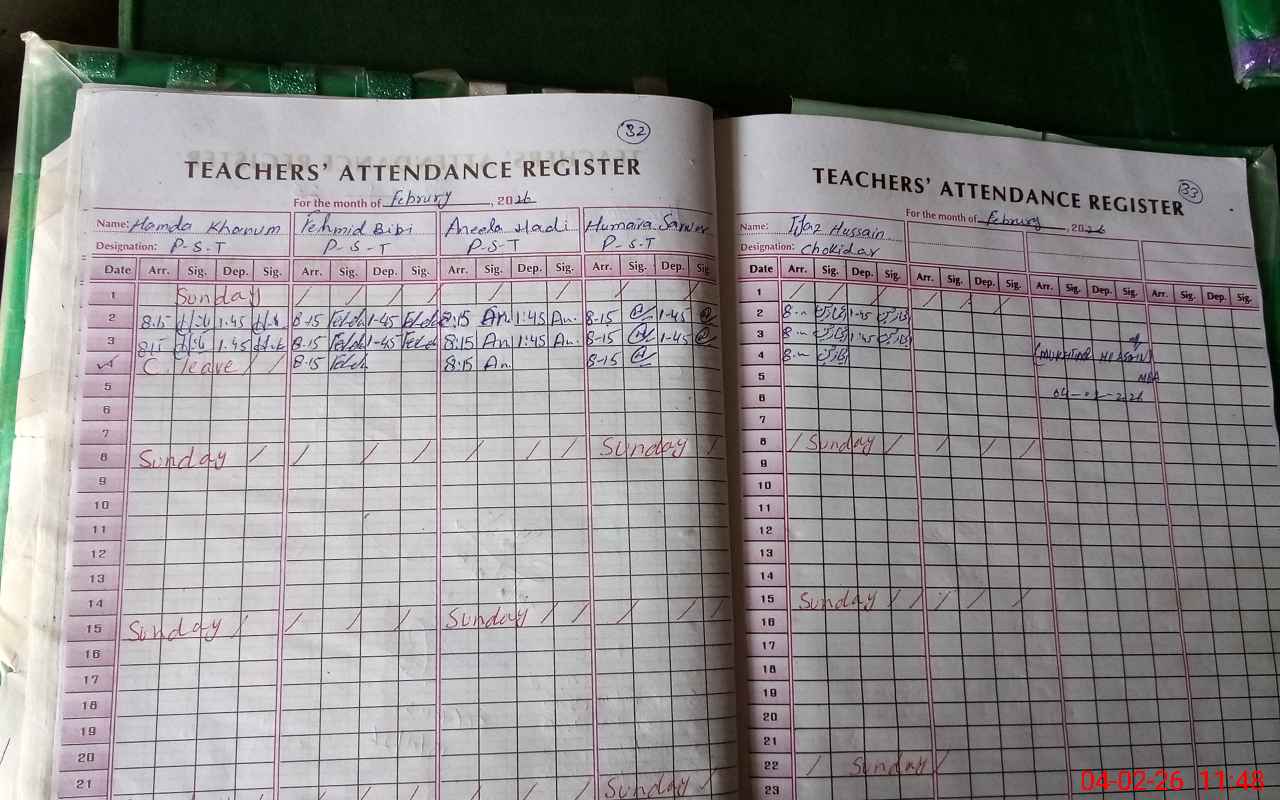 32
TEACHERS' ATTENDANCE REGISTER
For the month of Februry, 2026
Name: Hamda Khanum Tehmid Bibi Aneela Hadi Humaira Sarwer
Designation: P-S-T P-S-T P-S-T P-S-T
Date Arr. Sig. Dep. Sig. Arr. Sig. Dep. Sig. Arr. Sig. Dep. Sig. Arr. Sig. Dep. Sig.
1 Sunday / / / / / / / /
2 8:15 1:45 8-15 1-45 8:15 An 1:45 An. 8-15 1-45
3 8:15 1:45 8-15 1-45 8:15 An 1:45 An. 8-15 1-45
4 C. leave / / 8-15 8:15 An. 8-15
5
6
7
8 Sunday / / / / / / / Sunday /
9
10
11
12
13
14
15 Sunday / / / / Sunday / / / / /
16
17
18
19
20
21 Sunday /
33
TEACHERS' ATTENDANCE REGISTER
For the month of Februry, 2026
Name: Ijaz Hussain
Designation: Chokidar
Date Arr. Sig. Dep. Sig. Arr. Sig. Dep. Sig. Arr. Sig. Dep. Sig. Arr. Sig. Dep. Sig.
1 / / / / / /
2 1-45
3 1-45
4 (MUKHTIAR HUSSAIN)
5 MEA
6
7
8 / Sunday / / / /
9
10
11
12
13
14
15 Sunday / / / / /
16
17
18
19
20
21
22 / Sunday /
23
04-02-26 11:48